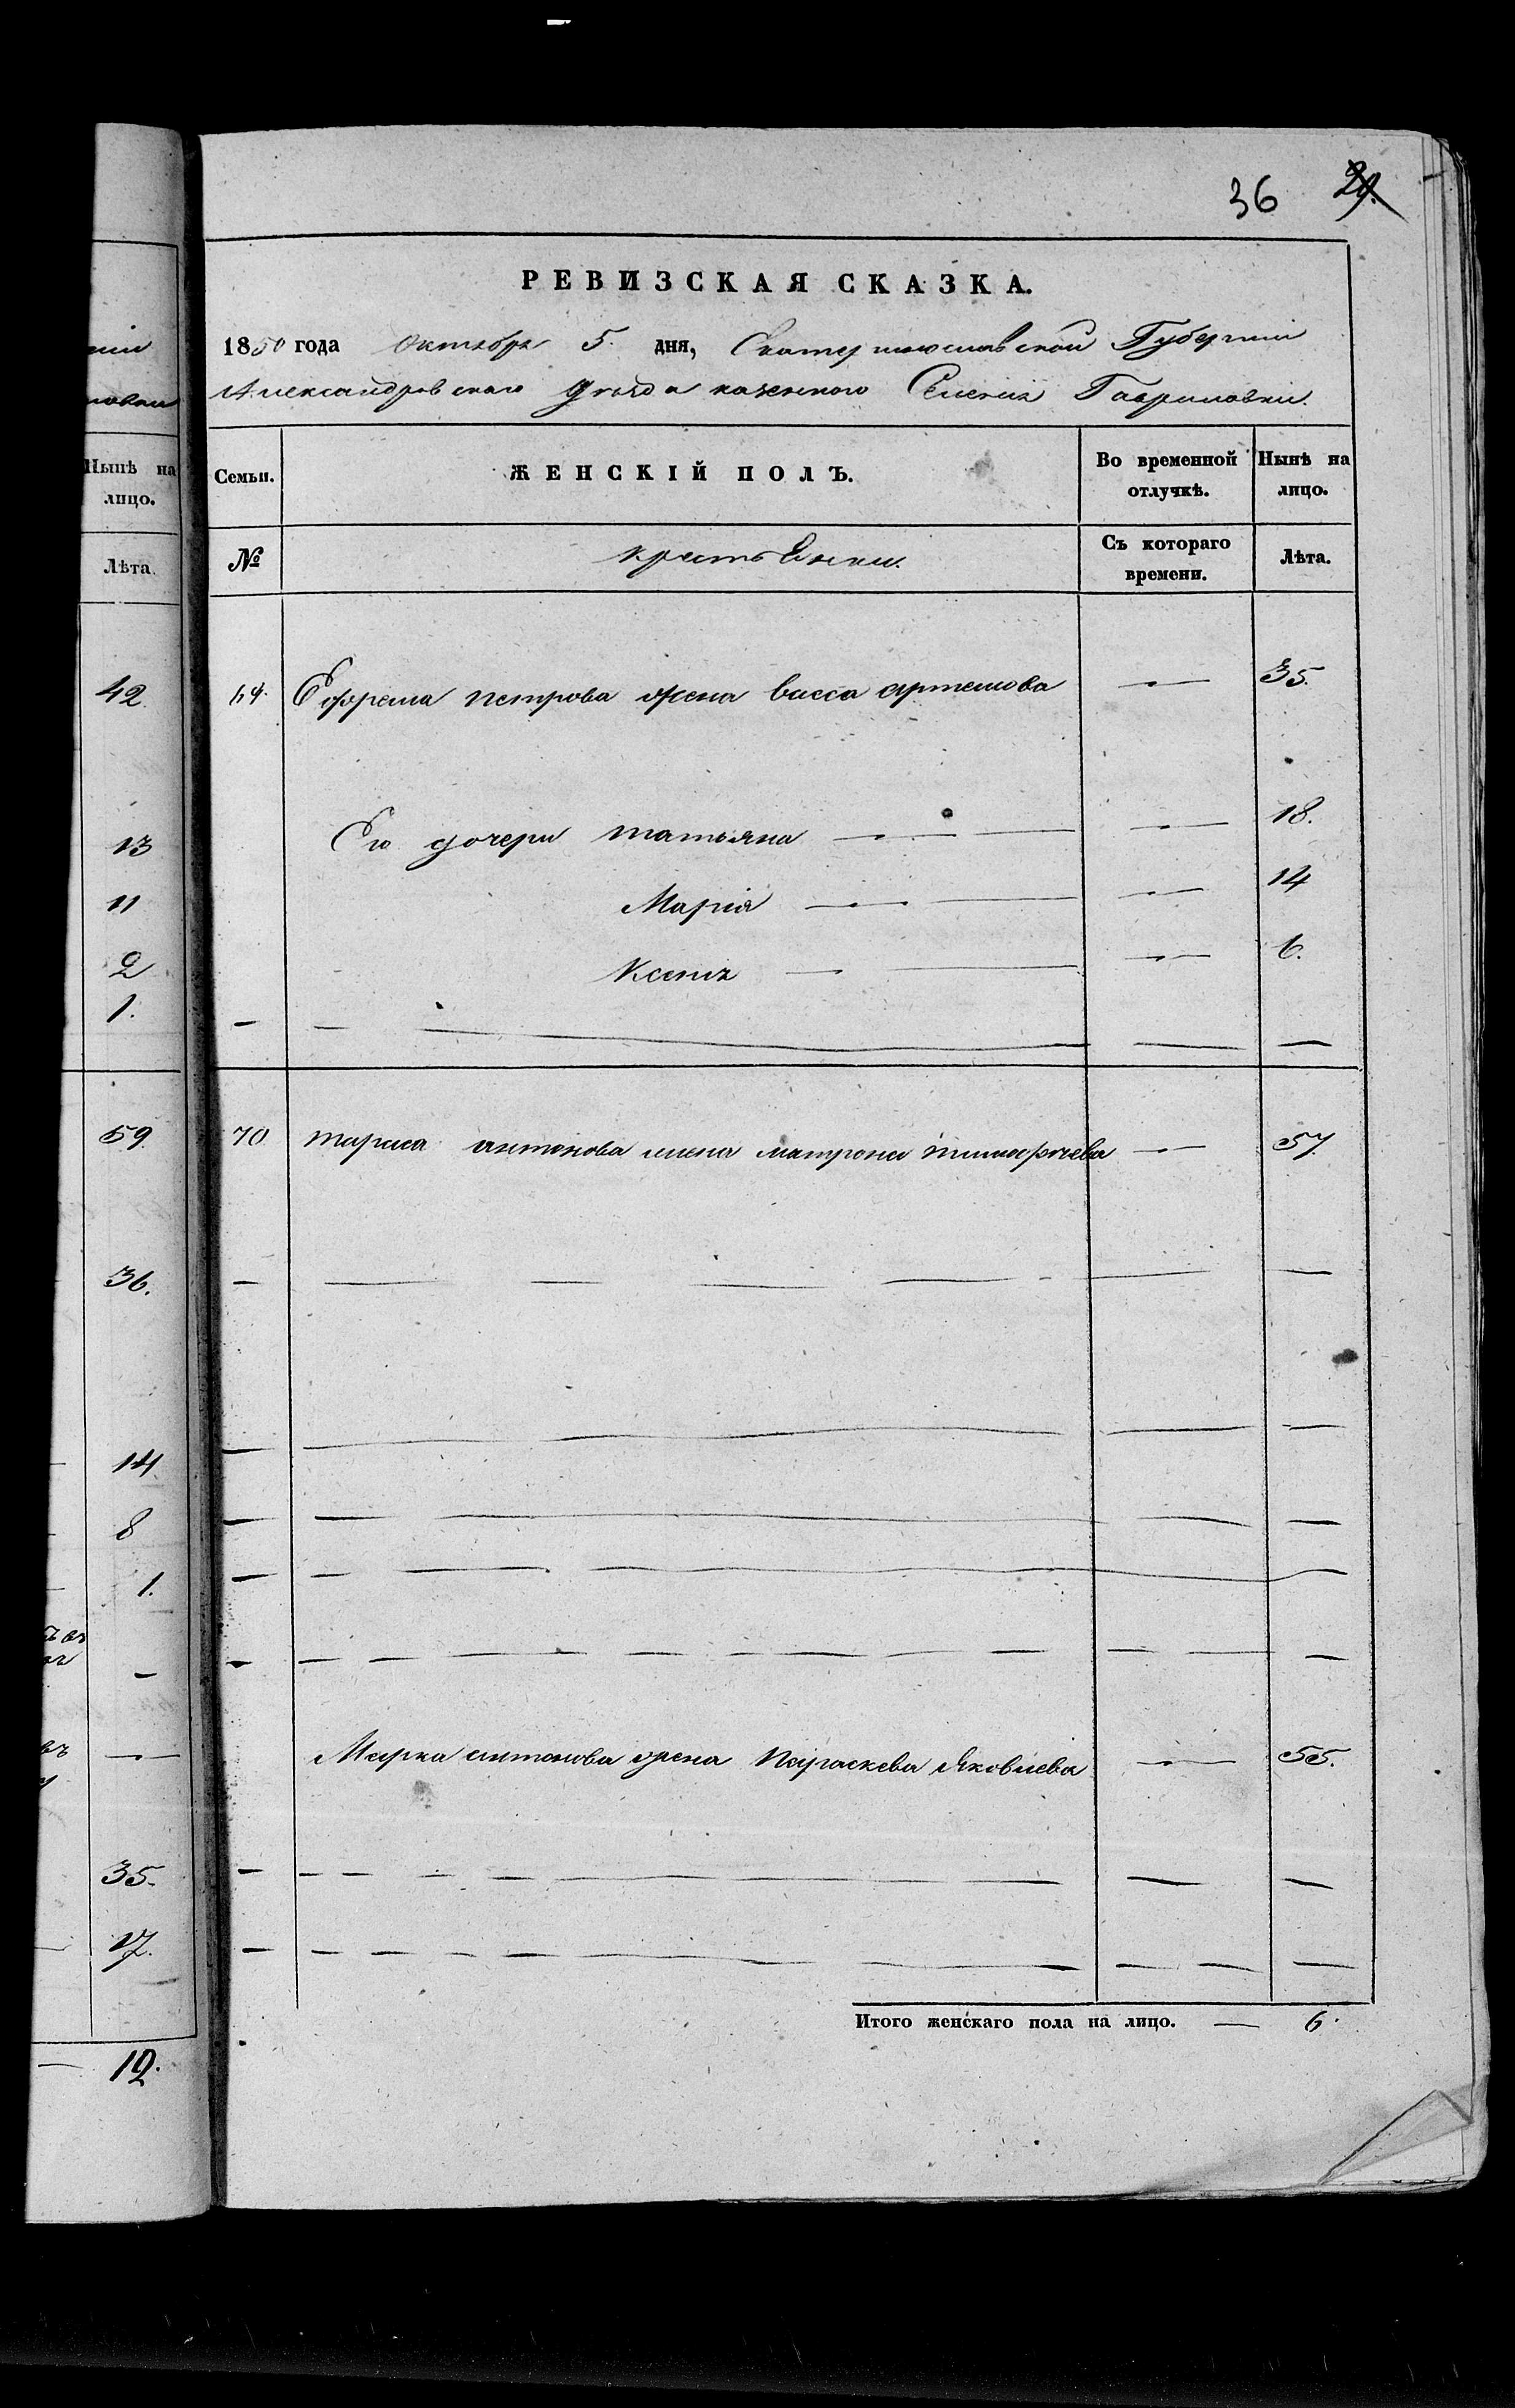 36 29.
РЕВИЗСКАЯ СКАЗКА.
1850 года Октября 5. дня, Екатеринославской Губерніи
Александровскаго уѣзда казенного Селенія Гавриловки.
Семьи. ЖЕНСКІЙ ПОЛЪ. Во временной отлучкѣ. Нынѣ на лицо.
№ крестьянки. Съ котораго времени. Лѣта.
69. Ефрема Петрова жена васса артемова — 35.
Его дочери татьяна — — 18.
Марія — — 14
Ксенія — — 6.
70 тараса антонова жена матрона тимофѣева — 57.
Марка антонова жена Параскева Яковлева — 55.
Итого женскаго пола на лицо. — 6.
Нынѣ на
лицо.
Лѣта.
42.
13
11
2
1.
59.
36.
14
8
1.
35.
17.
12.